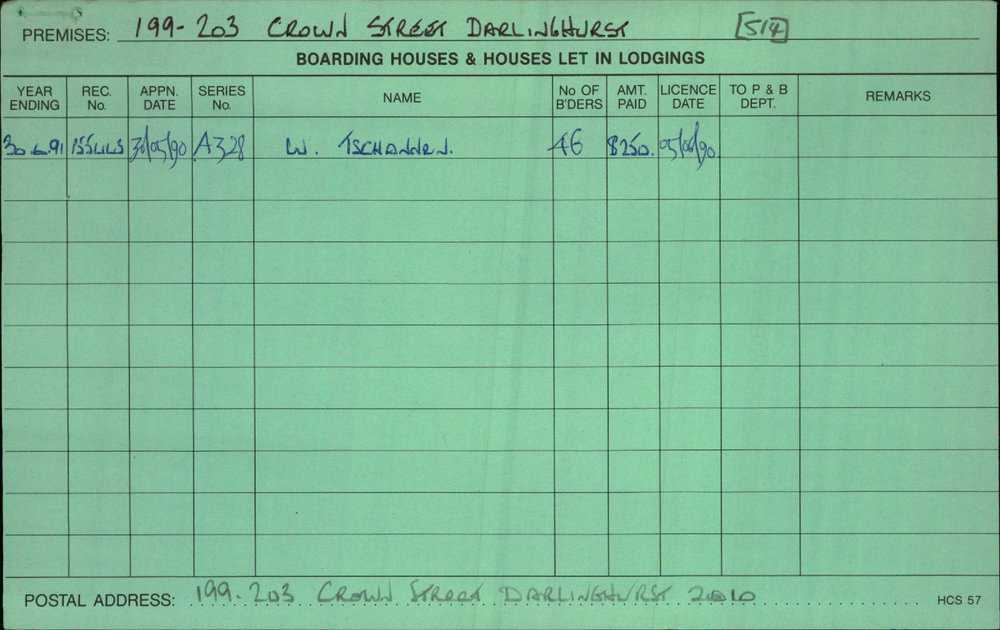 PREMISES: 199-203 CROWN STREET DARLINGHURST [514]
BOARDING HOUSES & HOUSES LET IN LODGINGS
YEAR ENDING REC. No. APPN. DATE SERIES No. NAME No OF B'DERS AMT. PAID LICENCE DATE TO P & B DEPT. REMARKS
30.6.91 30/05/90 A328 W. TSCHANNEN. 46 $250. 05/06/90
POSTAL ADDRESS: 199-203 CROWN STREET DARLINGHURST 2010 HCS 57